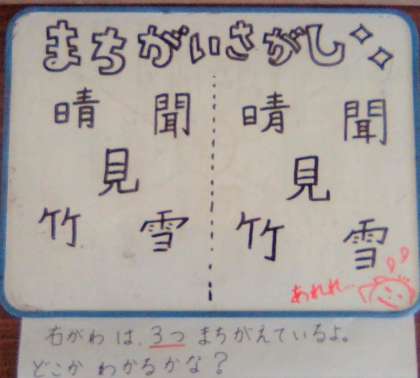 まちがいさがし
晴 聞
見
竹 雪
晴 聞
見
竹 雪
あれれ…
右がわ は、3つ まちがえているよ。
どこか わかるかな?